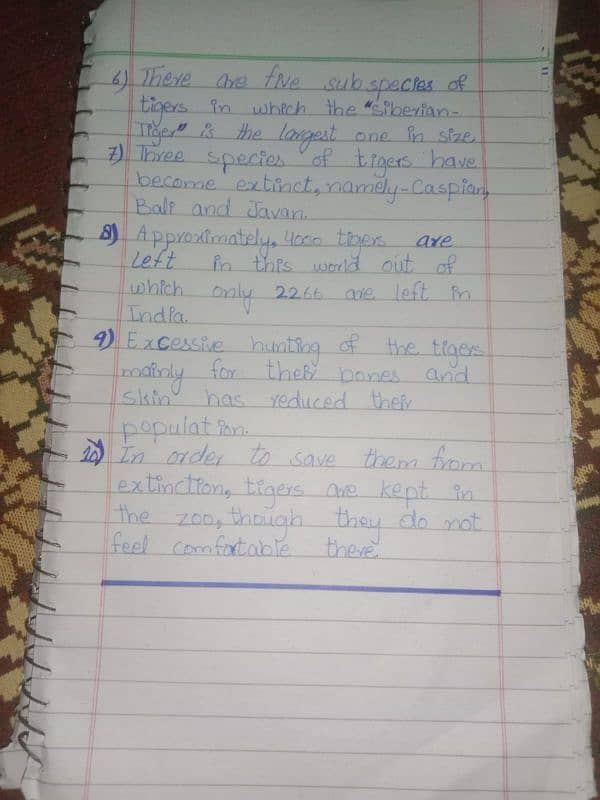 6) There are five subspecies of
tigers in which the "Siberian-
Tiger" is the largest one in size
7) Three species of tigers have
become extinct, namely-Caspian,
Bali and Javan.
8) Approximately, 4000 tigers are
left in this world out of
which only 2266 are left in
India.
9) Excessive hunting of the tigers
mainly for their bones and
skin has reduced their
population.
10) In order to save them from
extinction, tigers are kept in
the zoo, though they do not
feel comfortable there.